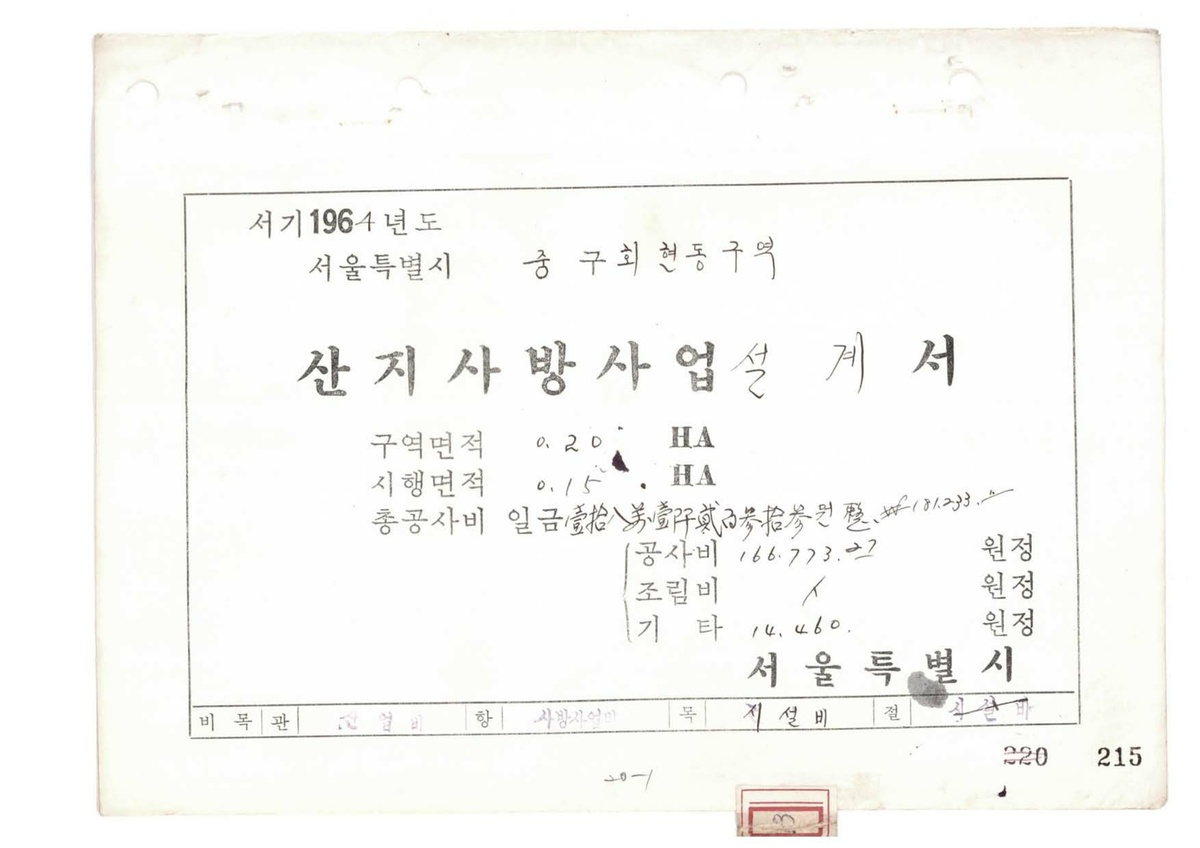 서기1964년도
서울특별시 중구회현동구역
산지사방사업설계서
구역면적 0.20 HA
시행면적 0.15 HA
총공사비 일금壹拾八萬壹仟貳百參拾參원整 ₩181.233.-
공사비 166.773.27 원정
조림비 원정
기 타 14.460. 원정
서울특별시
비목 관 산업비 항 사방사업비 목 시설비 절 시설비
220 215
20-1
13